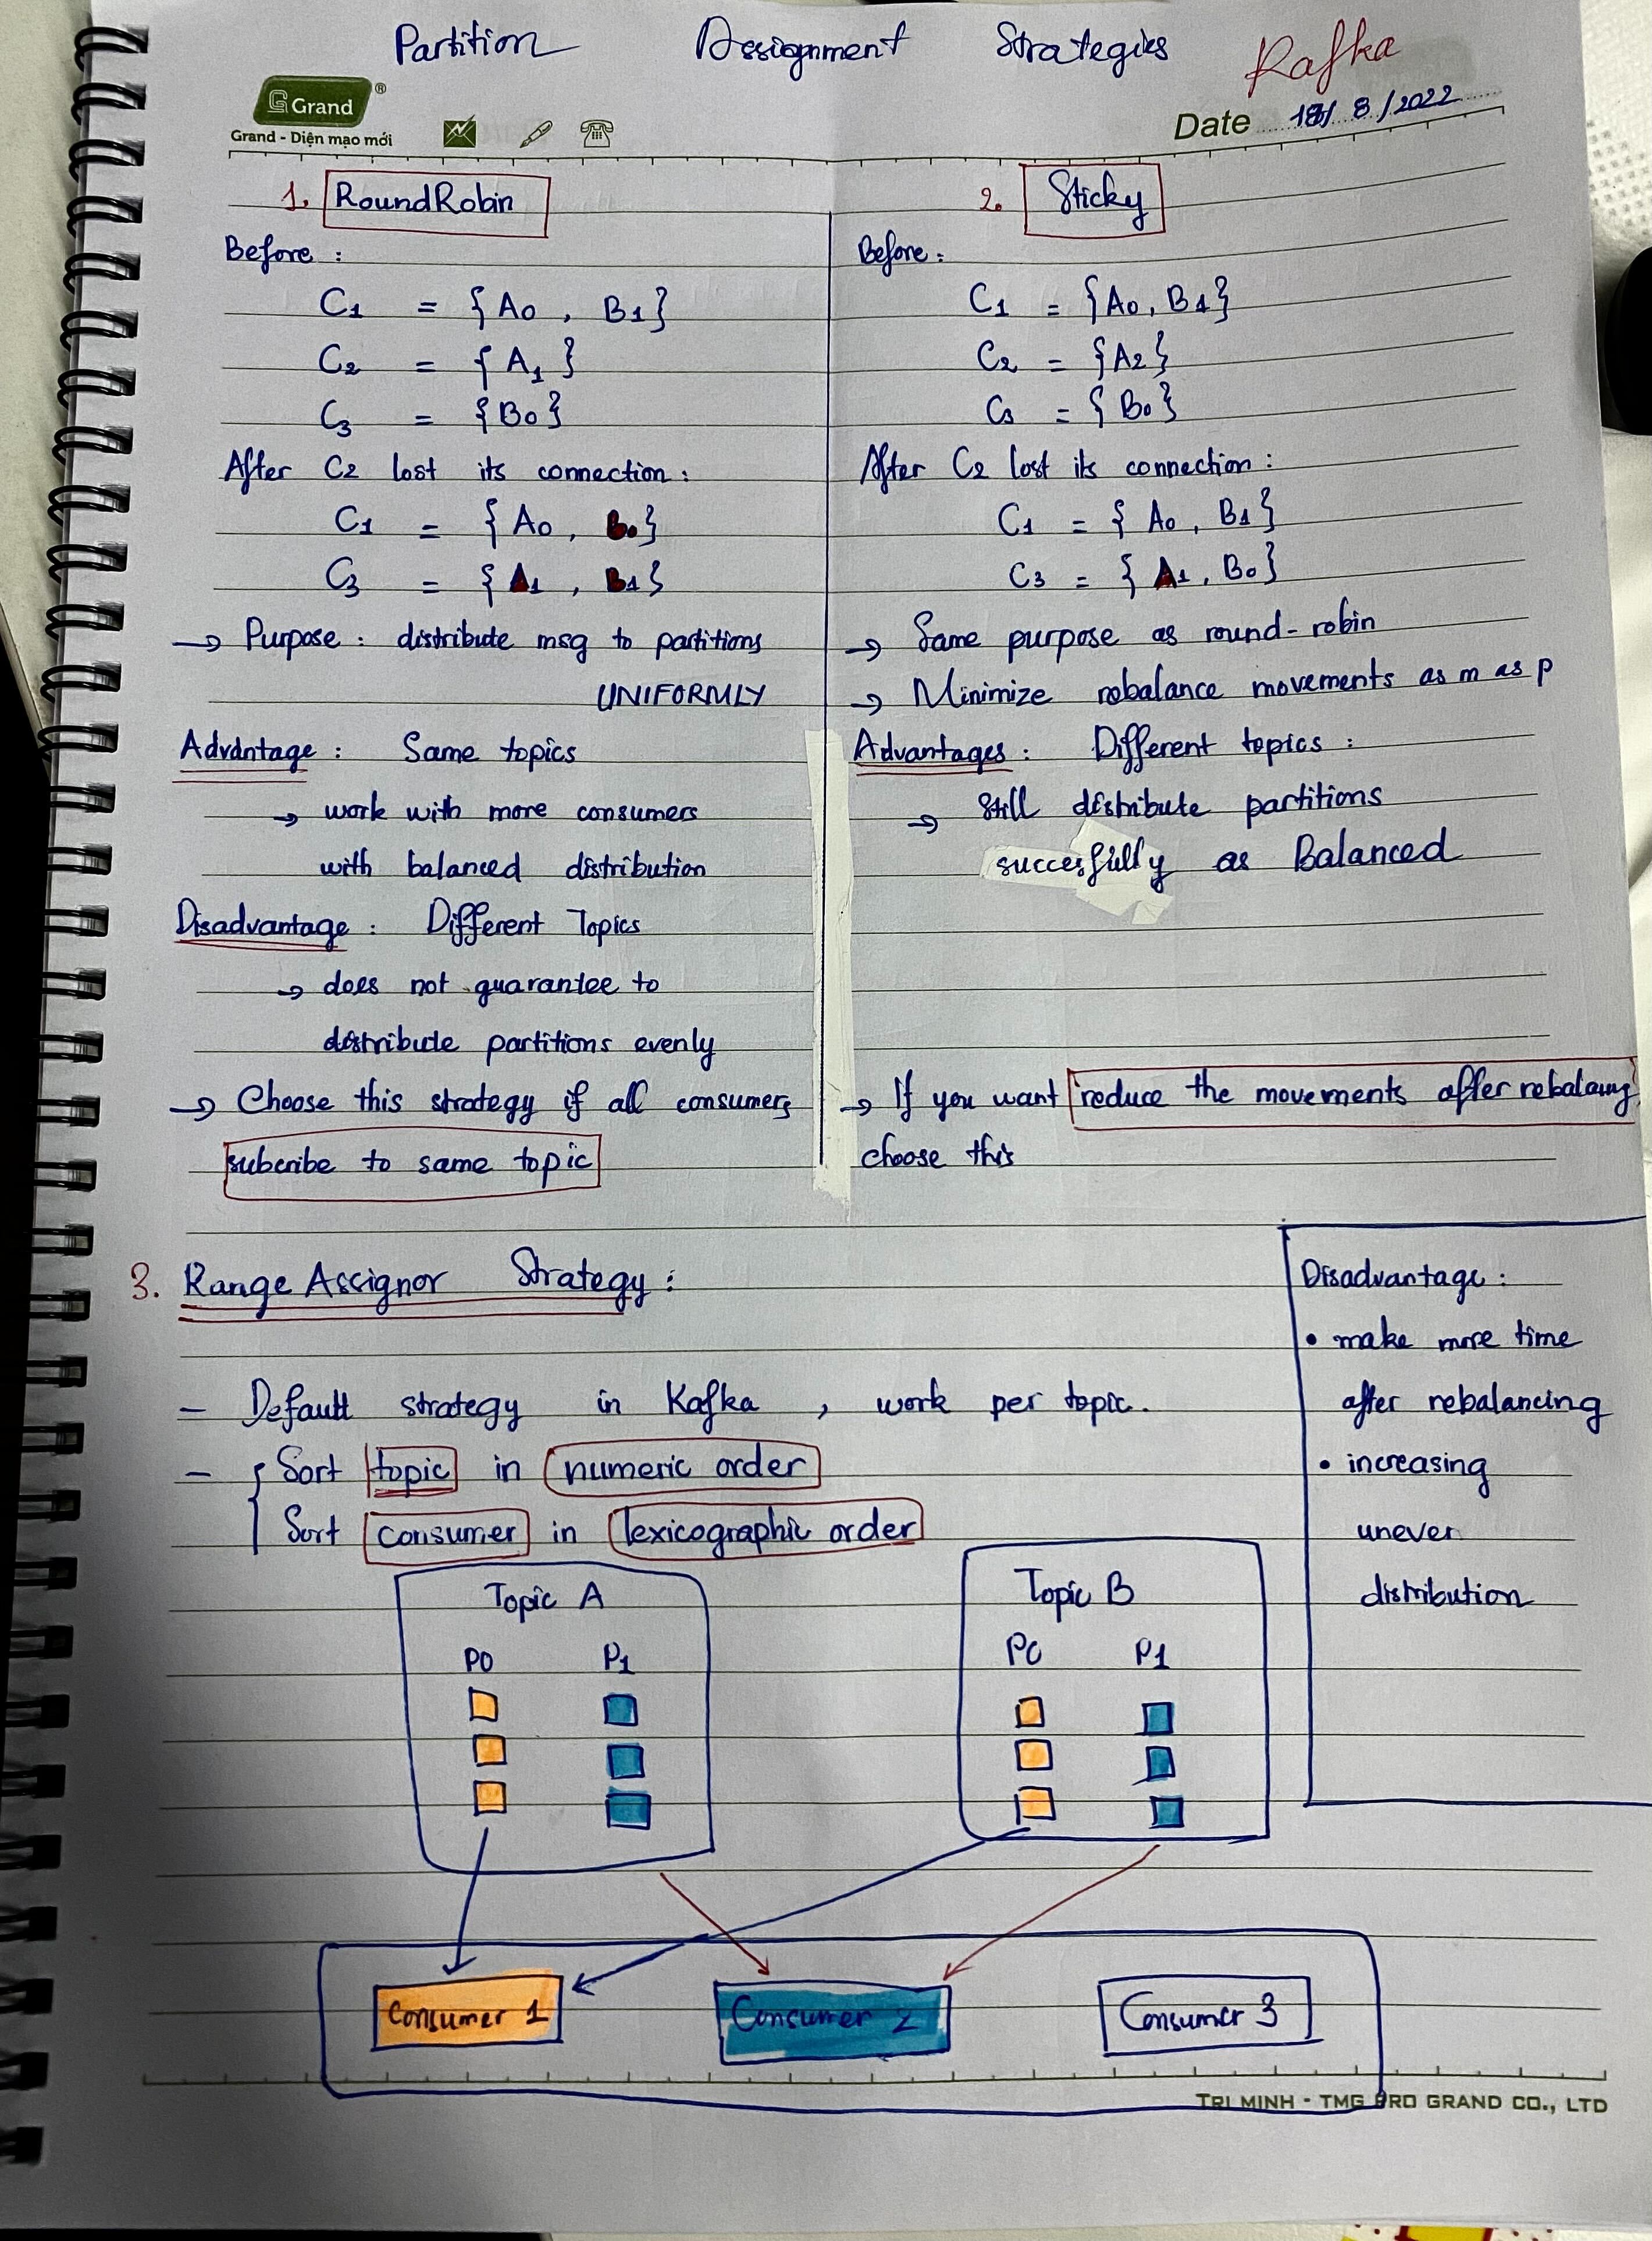 Partition Assignment Strategies Kafka
G Grand ®
Grand - Diện mạo mới
Date 18/ 8 /2022
1. RoundRobin
Before :
C1 = { A0 , B1 }
C2 = { A1 }
C3 = { B0 }
After C2 lost its connection :
C1 = { A0 , B0 }
C3 = { A1 , B1 }
→ Purpose : distribute msg to partitions
UNIFORMLY
Advantage : Same topics
→ work with more consumers
with balanced distribution
Disadvantage : Different Topics
→ does not guarantee to
distribute partitions evenly
→ Choose this strategy if all consumers
subcribe to same topic
2. Sticky
Before :
C1 = { A0, B1 }
C2 = { A2 }
C3 = { B0 }
After C2 lost its connection :
C1 = { A0 , B1 }
C3 = { A1 , B0 }
→ Same purpose as round-robin
→ Minimize rebalance movements as m as p
Advantages : Different topics :
→ Still distribute partitions
succesfully as Balanced
→ If you want reduce the movements after rebalacing
choose this
3. Range Assignor Strategy :
- Default strategy in Kafka , work per topic.
- { Sort topic in numeric order
Sort consumer in lexicographic order
Disadvantage :
• make more time
after rebalancing
• increasing
unever
distribution
Topic A
P0 P1
Topic B
P0 P1
Consumer 1 Consumer 2 Consumer 3
TRI MINH - TMG PRO GRAND CO., LTD